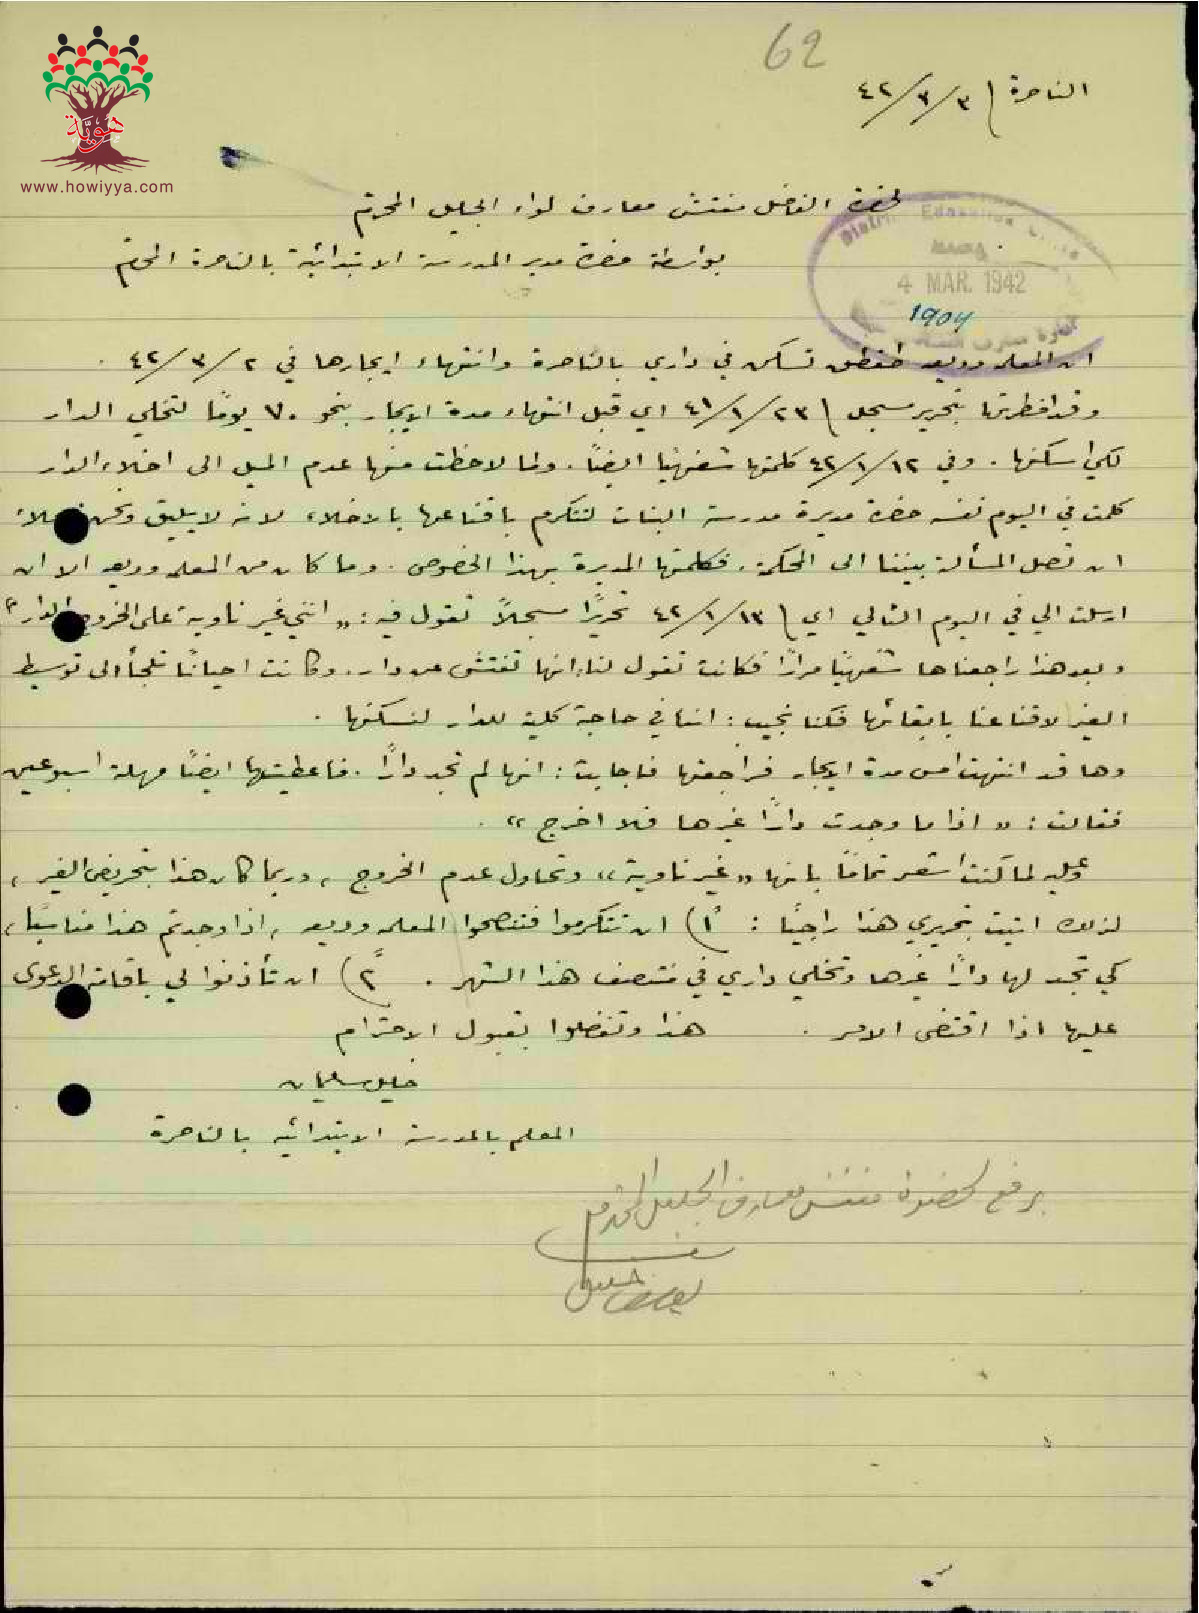 62
الناصرة / ٣/٣/٤٢
هوية
www.howiyya.com
لحضرة الفاضل مفتش معارف لواء الجليل المحترم
بواسطة حضرة مدير المدرسة الابتدائية بالناصرة المحترم
District Education Office
4 MAR. 1942
1904
ان المعلمه وديعه تسكن في داري بالناصرة وانتهاء ايجارها في ٢/٣/٤٢ .
وقد اخطرتها بتحرير مسجل / ٢٣/١/٤١ اي قبل انتهاء مدة الايجار بنحو ٧٠ يومًا لتخلي الدار
لكي اسكنها . وفي ١٢/١/٤٢ كلمتها شفهيًا ايضًا . ولما لاحظت منها عدم الميل الى اخلاء الدار
كلمت في اليوم نفسه حضرة مديرة مدرسة البنات لتتكرم باقناعها بالاخلاء لانه لا يليق ونحن
ان تصل المسألة بيننا الى المحكمة . فكلمتها المديرة بهذا الخصوص . وما كان من المعلمه وديعه الا ان
ارسلت الي في اليوم التالي اي / ١٣/١/٤٢ تحريرًا مسجلاً تقول فيه : « انني غير ناوية على الخروج الدار »
وبعد هذا راجعناها شفهيًا مرارًا فكانت تقول لنا: انها تفتش عن دار . وكانت احيانًا تلجأ الى توسيط
الغير لاقناعنا بابقائها فكنا نجيب : اننا في حاجة كلية للدار لنسكنها .
وها قد انتهت امس مدة الايجار فراجعتها فاجابت : انها لم تجد دارًا . فاعطيتها ايضًا مهلة اسبوعين
فقالت : « اذا ما وجدت دارًا غيرها فلا اخرج » .
وعليه لما كنت اشعر تمامًا بانها « غير ناوية » وتحاول عدم الخروج ، وربما كان هذا بتحريض الغير ،
لذلك اتيت بتحريري هذا راجيًا : ١) ان تتكرموا فتنصحوا المعلمه وديعه ، اذا وجدتم هذا مناسبًا ،
كي تجد لها دارًا غيرها وتخلي داري في منتصف هذا الشهر . ٢) ان تأذنوا لي باقامة الدعوى
عليها اذا اقتضى الامر . هذا وتفضلوا بقبول الاحترام
خليل سليمان
المعلم بالمدرسة الابتدائية بالناصرة
يرفع لحضرة مفتش معارف الجليل المحترم